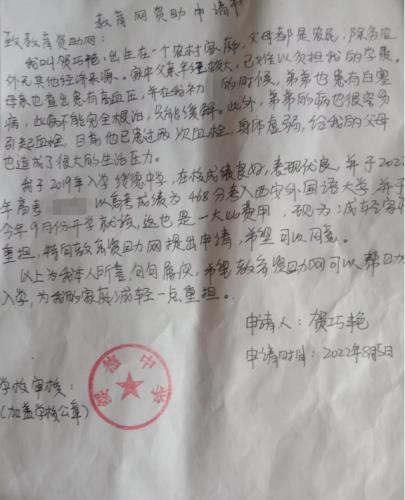 教育网资助申请书
致教育资助网:
我叫贺巧艳,出生在一个农村家庭,父母都是农民,除务农
外无其他经济来源。家中父亲年已越大,已难以负担我的学费。
母亲也查出患有高血压,并在我初 的时候,弟弟也患有白塞
病,此病不能完全根治,只能缓解。此外,弟弟的病也很容易
引起血栓,目前他已患过两次血栓,身体虚弱,给我的父母
也造成了很大的生活压力。
我于2019年入学绥德中学,在校成绩良好,表现优良,并于2022
年高考 以高考成绩为468分考入西安外国语大学,并于
今年9月份开学就读,这也是一大笔费用,现为减轻家庭
重担,特向教育资助网提出申请,希望可以同意。
以上为我本人所写,句句属实,希望教育资助网可以帮助
入学,为我的家庭减轻一点重担。
申请人:贺巧艳
申请时间:2022年8月5日
学校审核:
(加盖学校公章)